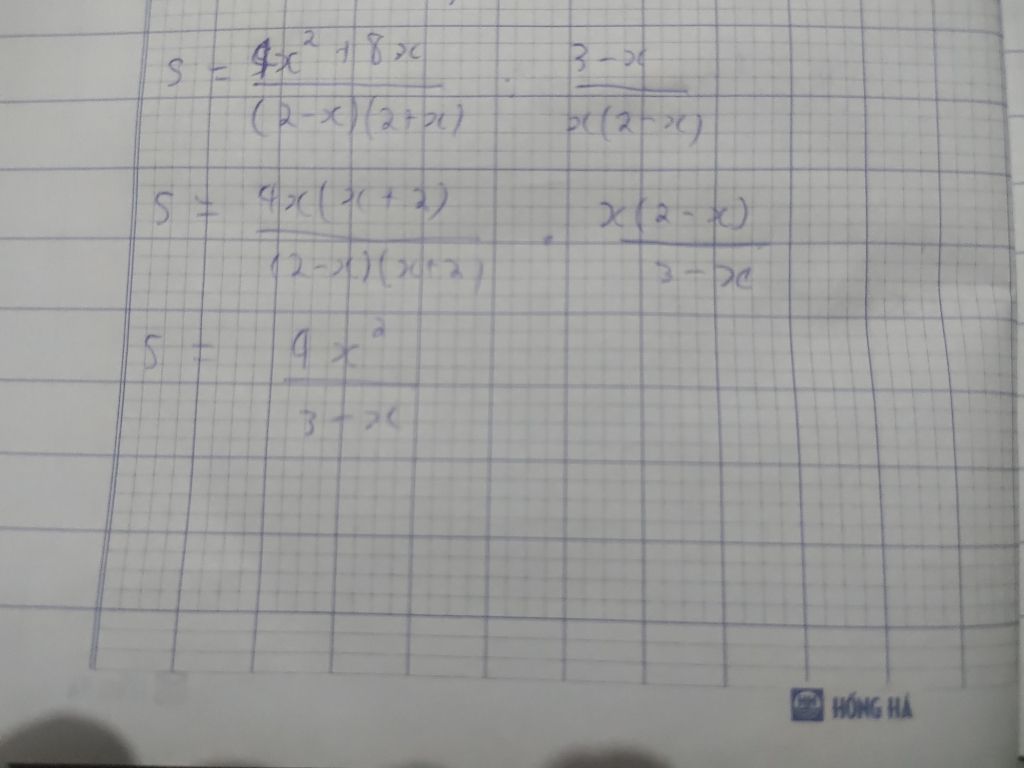 S = 4x² + 8x / (2-x)(2+x) : 3-x / x(2-x)
S = 4x(x+2) / (2-x)(x+2) . x(2-x) / 3-x
S = 4x² / 3-x
HỒNG HÀ